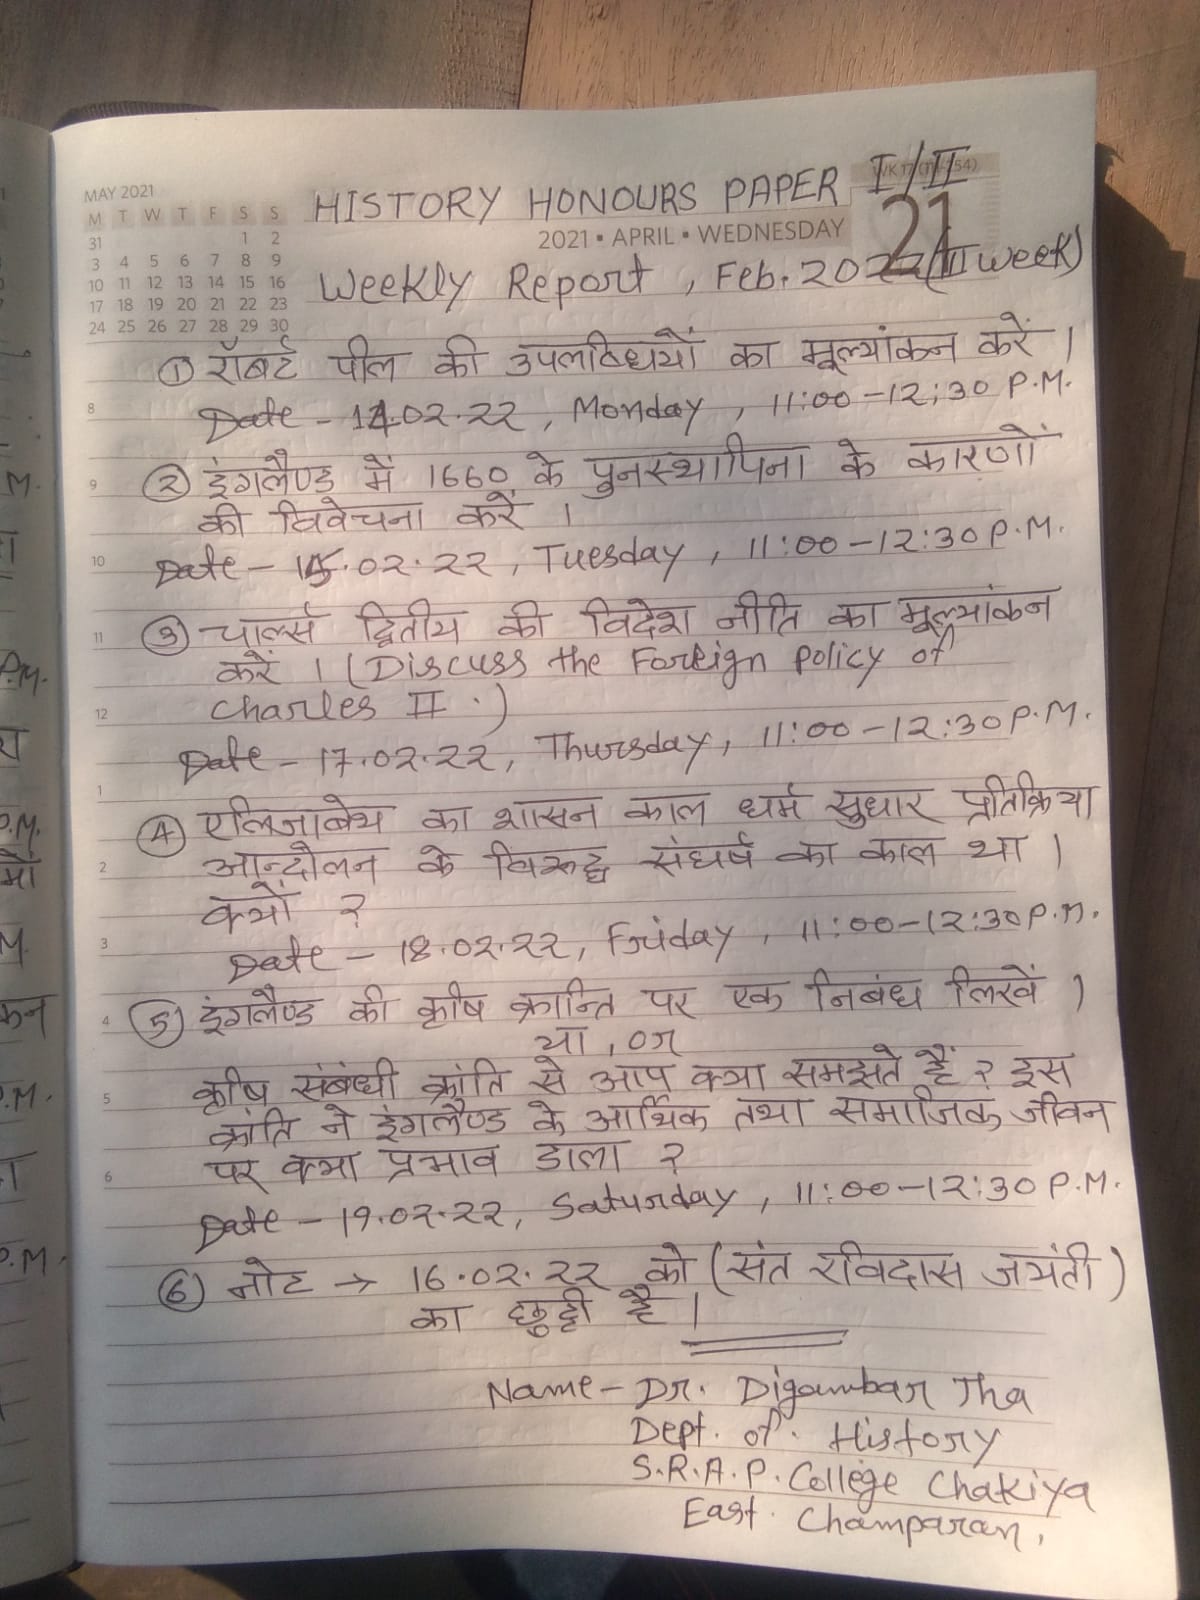 MAY 2021
M T W T F S S
31 1 2
3 4 5 6 7 8 9
10 11 12 13 14 15 16
17 18 19 20 21 22 23
24 25 26 27 28 29 30
HISTORY HONOURS PAPER I/II
2021 • APRIL • WEDNESDAY
21
Weekly Report, Feb. 2022 (II Week)
① रॉबर्ट पील की उपलब्धियों का मूल्यांकन करें।
8
Date - 14.02.22, Monday, 11:00-12:30 P.M.
9
② इंगलैण्ड में 1660 के पुनस्थापिना के कारणों
की विवेचना करें।
10
Date - 15.02.22, Tuesday, 11:00-12:30 P.M.
11
③ चार्ल्स द्वितीय की विदेश नीति का मूल्यांकन
करें। (Discuss the Foreign policy of
12
Charles II.)
Date - 17.02.22, Thursday, 11:00-12:30 P.M.
1
④ एलिजाबेथ का शासन काल धर्म सुधार प्रतिक्रिया
2
आन्दोलन के विरुद्ध संघर्ष का काल था।
क्यों ?
3
Date - 18.02.22, Friday, 11:00-12:30 P.M.
4
⑤ इंगलैण्ड की कृषि क्रान्ति पर एक निबंध लिखें।
या, or
5
कृषि संबंधी क्रांति से आप क्या समझते हैं ? इस
क्रांति ने इंगलैण्ड के आर्थिक तथा समाजिक जीवन
6
पर क्या प्रभाव डाला ?
Date - 19.02.22, Saturday, 11:00-12:30 P.M.
⑥ नोट → 16.02.22 को (संत रविदास जयंती)
का छुट्टी है।
Name - Dr. Digambar Jha
Dept. of. History
S.R.A.P. College Chakiya
East. Champaran.